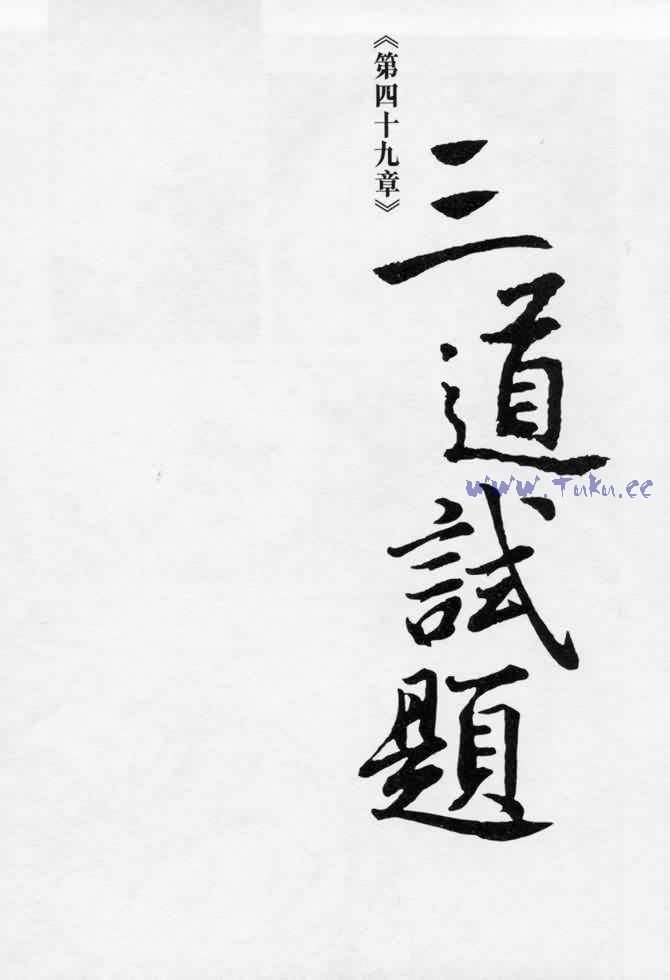 《第四十九章》
三道試題
www.Tuku.cc